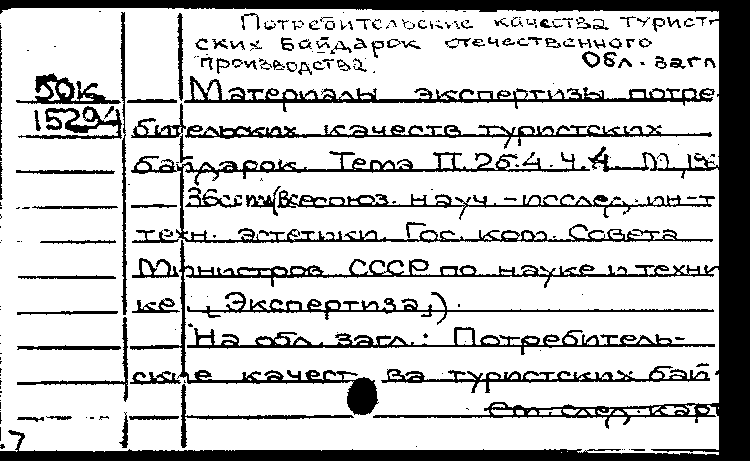 Потребительские качества турист
ских байдарок отечественного
производства. Обл. загл
50К Материалы экспертизы потре-
15294 бительских качеств туристских
байдарок. Тема П.26.4.4.4. М,
36 с. (Всесоюз. науч.-исслед. ин-т
техн. эстетики Гос. ком. Совета
Министров СССР по науке и техни
ке. [Экспертиза]).
На обл. загл.: Потребитель-
ские качест ва туристских бай-
см. след. карт
7